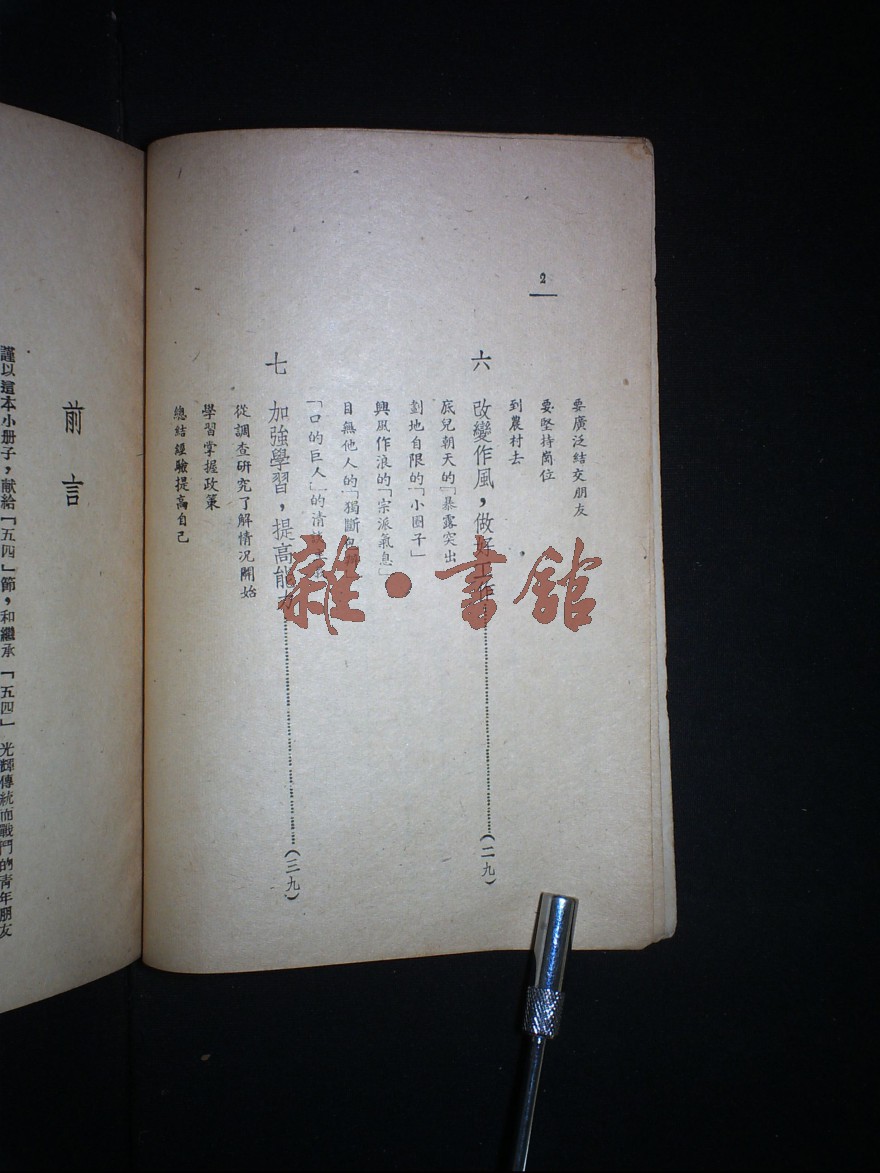 2
要廣泛結交朋友
要堅持崗位
到農村去
六 改變作風，做好工作……(二九)
底兒朝天的「暴露突出
劃地自限的「小圈子」
興風作浪的「宗派氣息」
目無他人的「獨斷
「口的巨人」的清談
七 加強學習，提高能力……(三九)
從調查研究了解情況開始
學習掌握政策
總結經驗提高自己
前言
謹以這本小册子，献給「五四」節，和繼承「五四」光輝傳統而戰鬥的青年朋友
雜·書館